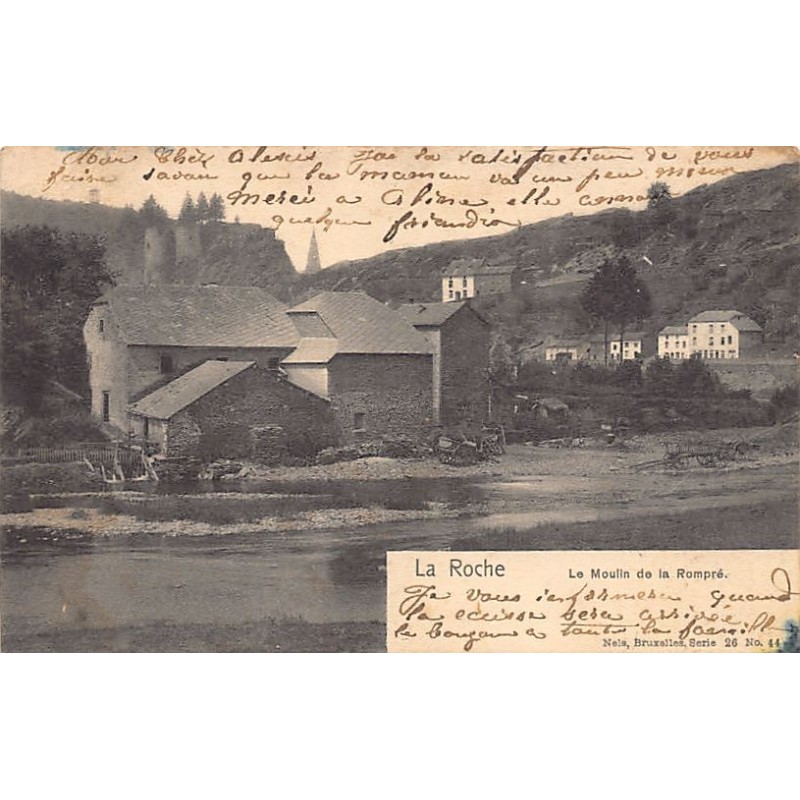 Mon Chèr Alexis J'ai la satisfaction de vous
faire savoir que la maman va un peu mieux
Merci a Aline, elle
quelque friandis
La Roche Le Moulin de la Rompré.
Je vous informera quand
la caisse sera arrivée
le bonjour a toute la famill
Nels, Bruxelles, Serie 26 No. 44